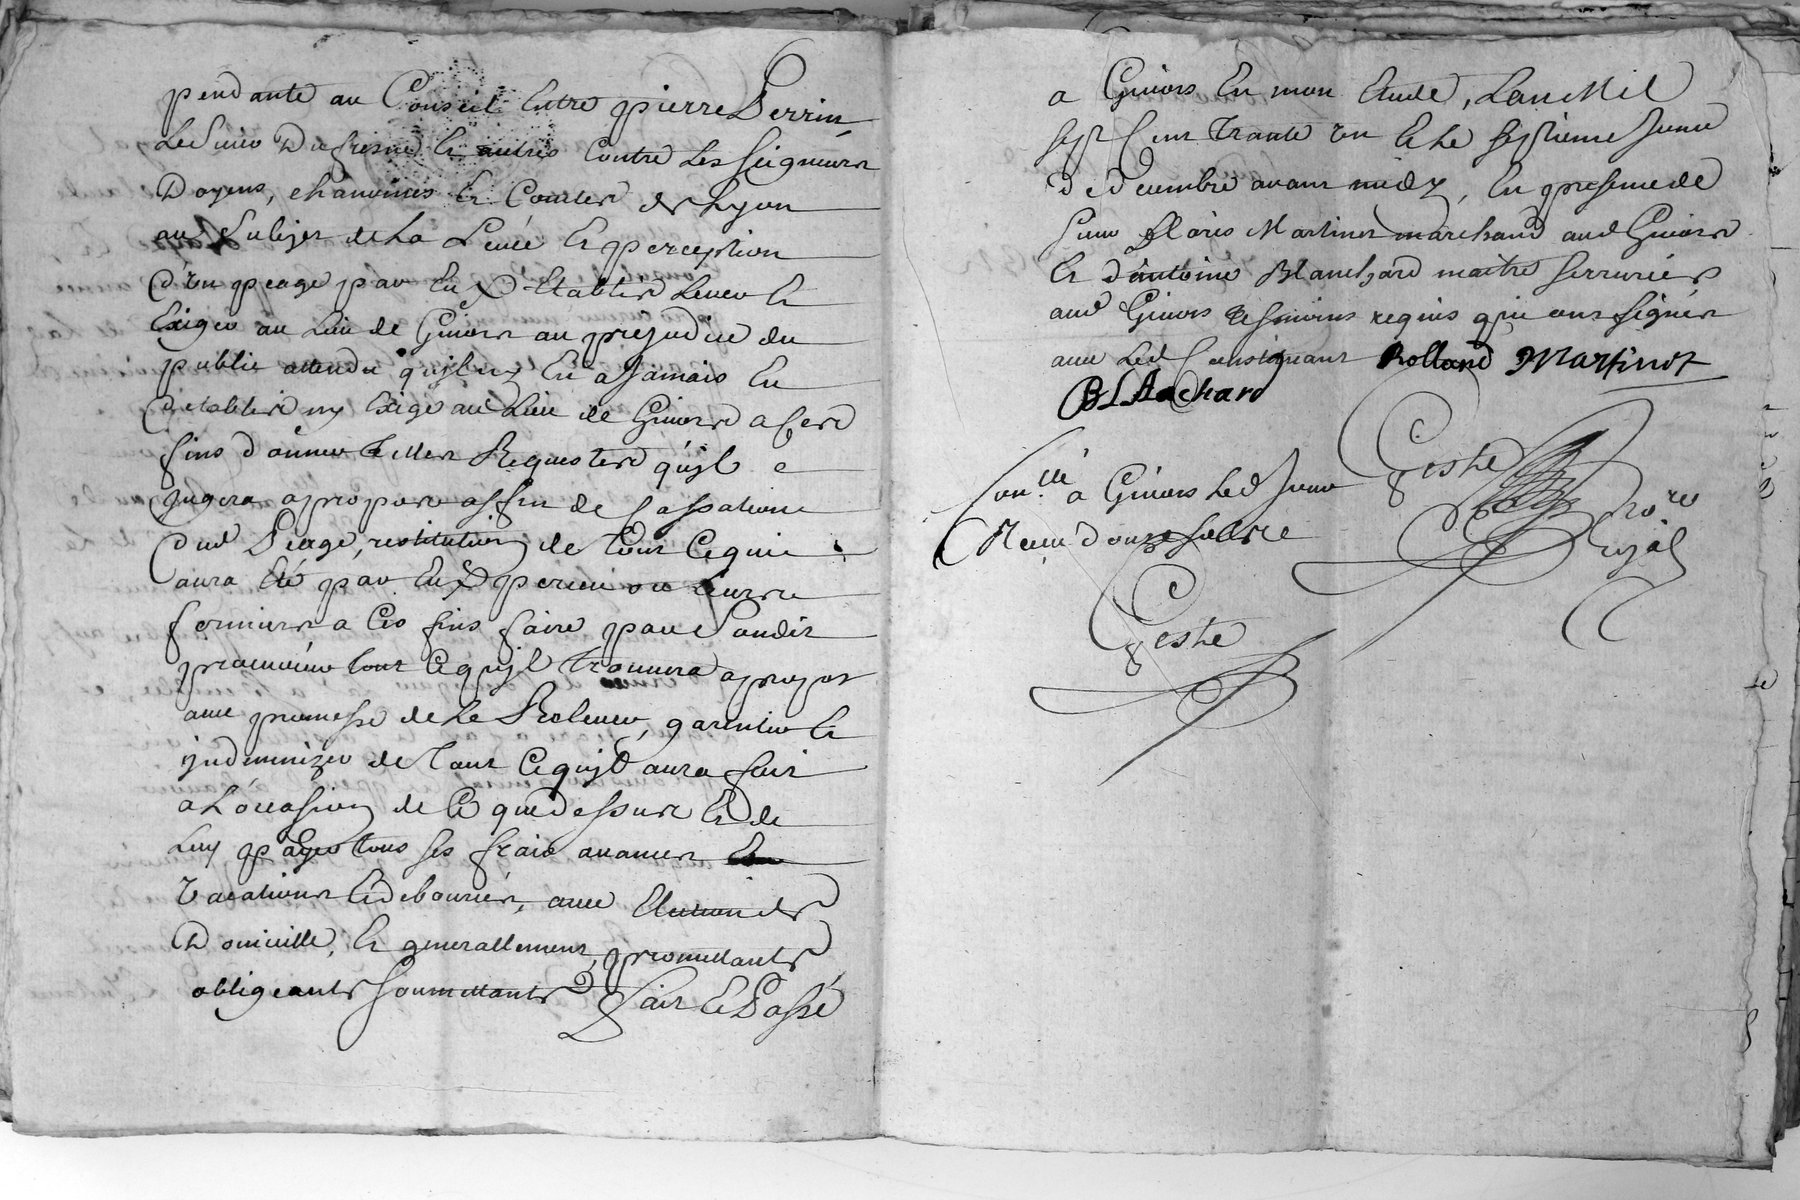 pendante au Conseil Entre pierre Perrin
Le Sieur Dufresne Et autres Contre Les Seigneurs
Doyens, chanoines Et Comtes de Lyon
au Subjet de La Levée Et perception
d'un peage par Eux Etablir Lever Et
Exiger au Lieu de Givors au prejudice du
public attendu quil ny En a Jamais Eu
d'etabli ny Exigé aud Lieu de Givors a Ces
fins donner telles Requestes quil
jugera a propos affin de Cassation
dud Peage, restitution de tout Ce qui
aura eté par Eux perceu ou Leurs
fermiers a Ces fins faire par Led
procureur tout Ce quil trouvera a propos
avec promesse de Le Relever, garentir Et
jndemnizer de tout Ce quil aura fait
a L'occasion de Ce que dessus Et de
Luy payer tous ses frais avances
vacations Et debourcés, avec Election de
Domicille, Et generallement, promettants
obligeants Soumettants Fait Et Passé
a Givors En mon Etude, Lan Mil
sept Cent Trante un Et Le septieme Jour
de decembre avant midy, En presence de
sieur Martinot marchand aud Givors
Et d'antoine Blanchard maitre serrurier
aud Givors tesmoins requis qui ont signés
avec Led Constituant Rolland Martinot
BLAnchard
Con.llé a Givors Led Jour
Receu douze sols
Geste
No.re
Royal
Geste